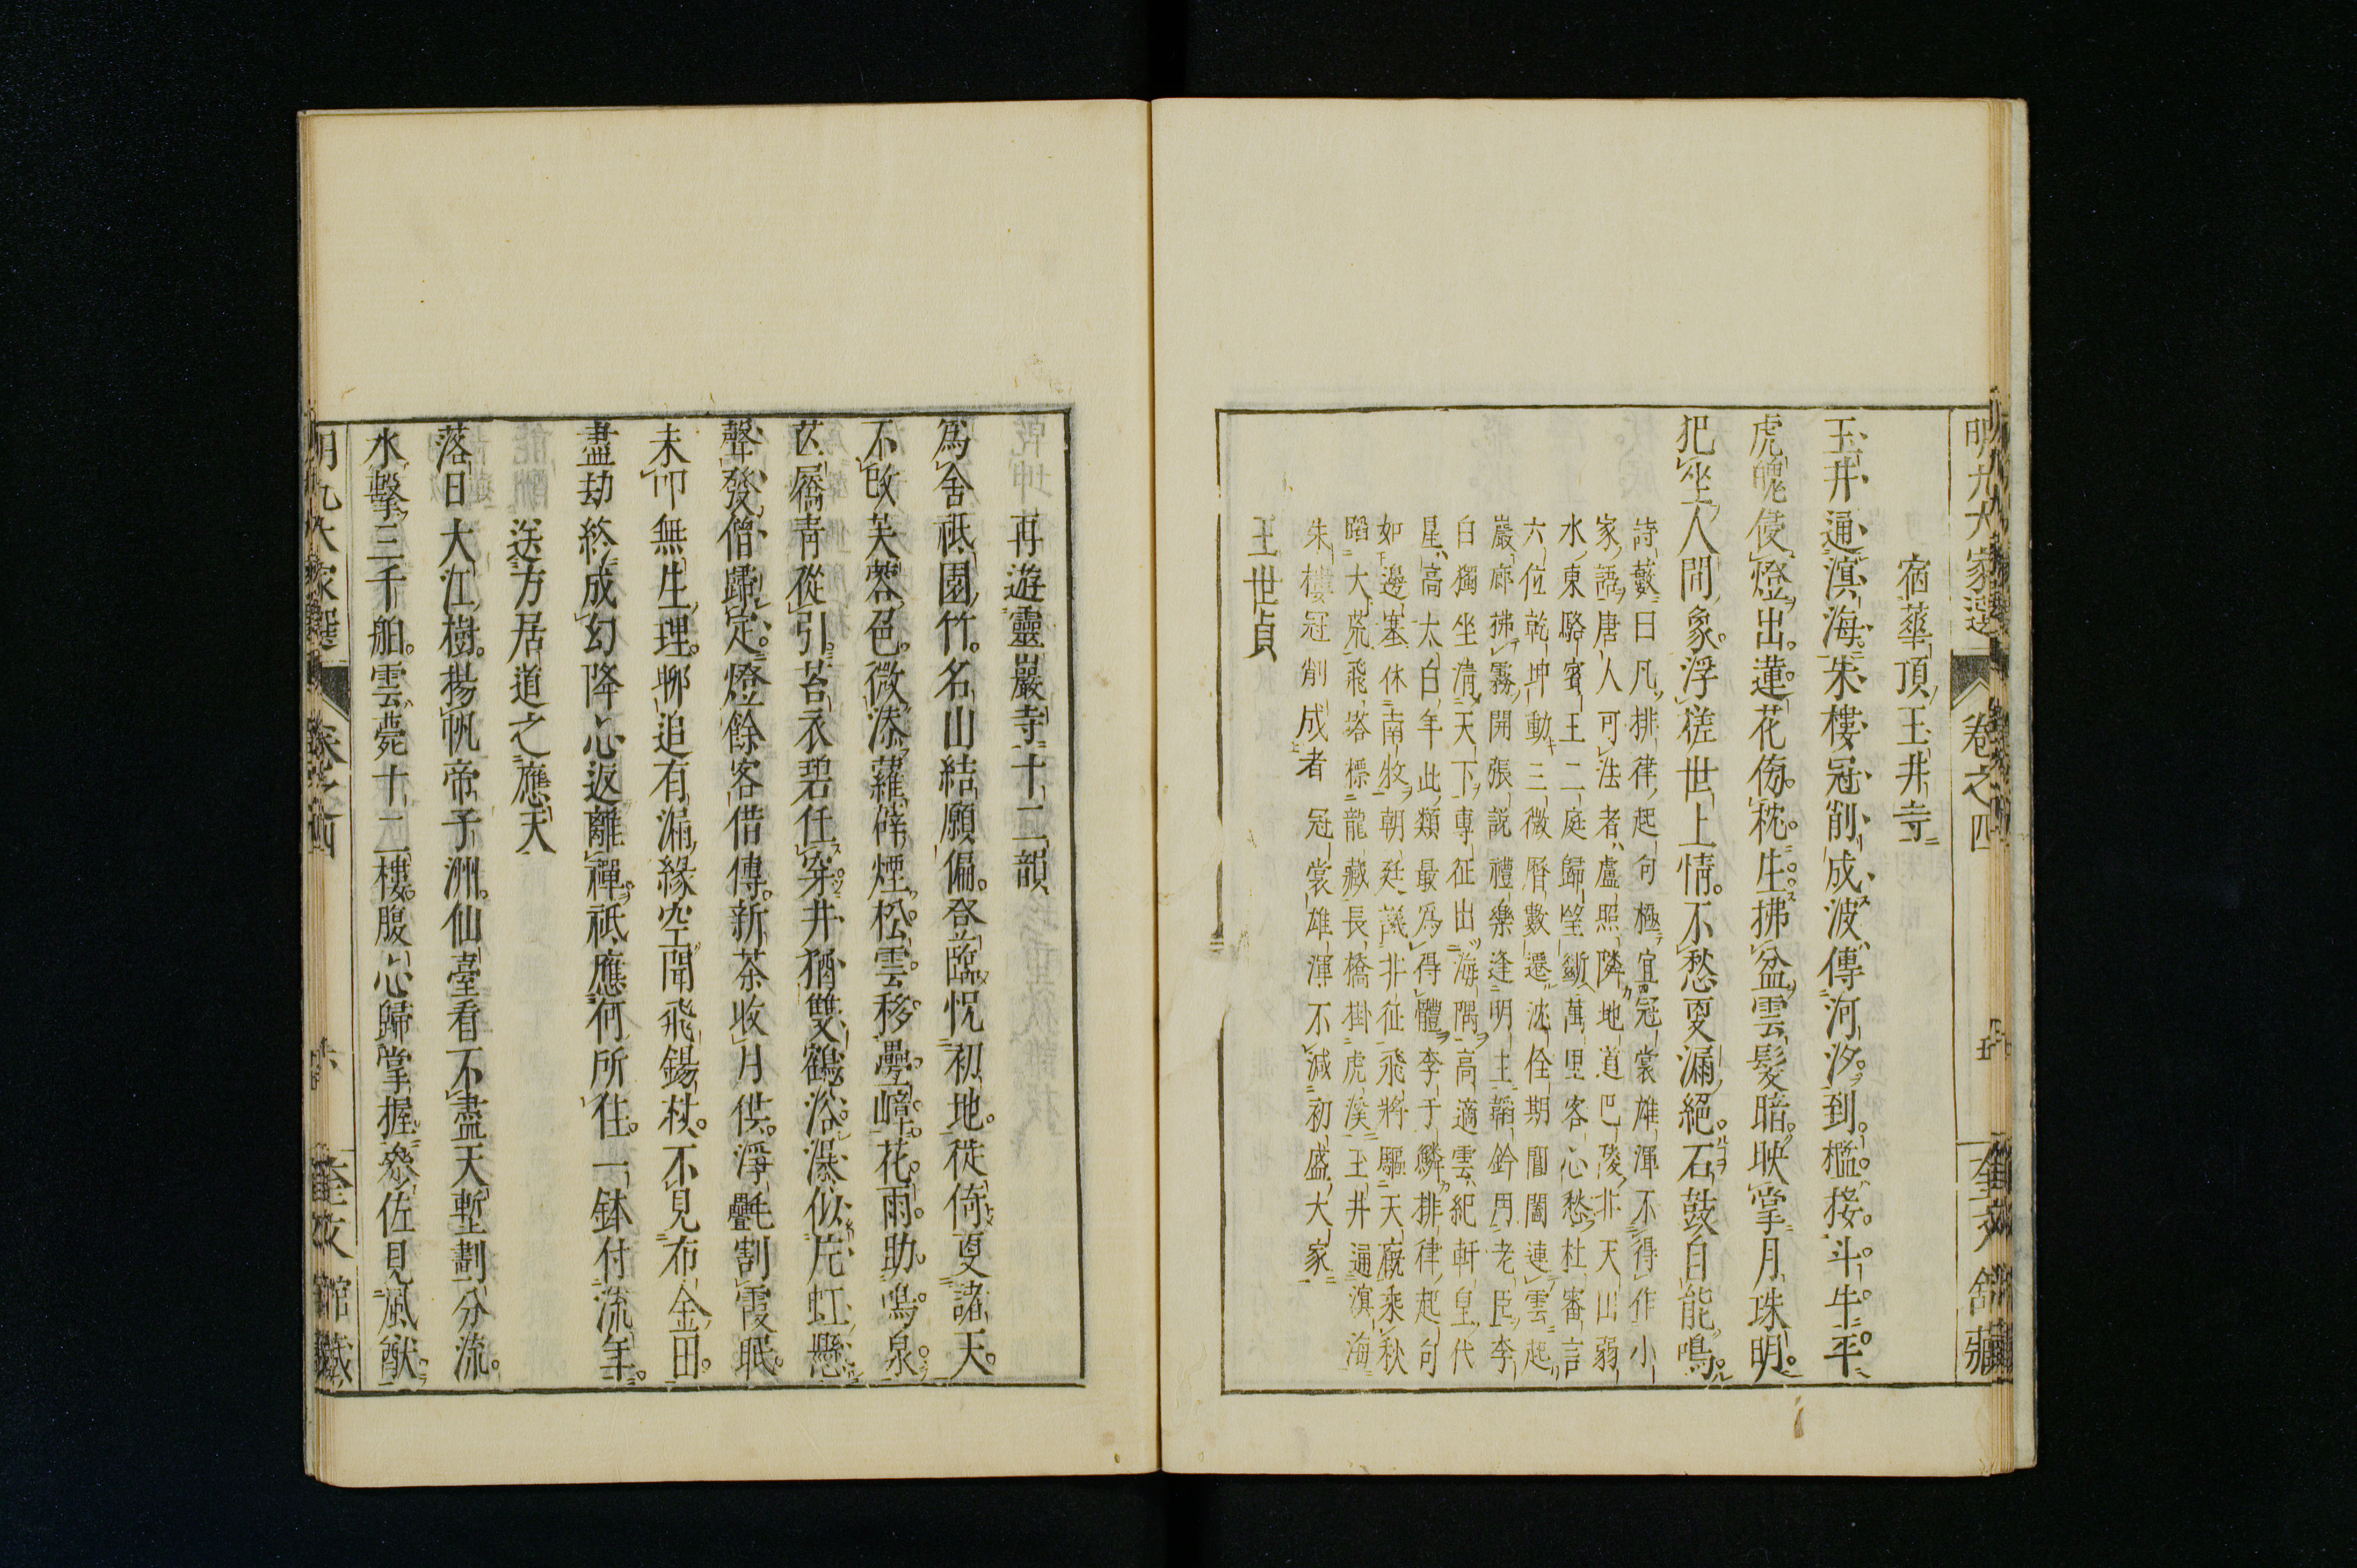 明九大家選 卷之四
宿華頂玉井寺
玉井通滇海朱樓冠削成波傳河汐到檻接斗牛平
虎魄使燈出蓮花傍枕生拂盆雲髮暗映掌月珠明
把坐人間象浮槎世上情不愁更漏絕石鼓自能鳴
詩藪曰凡排律起句極宜冠裳雄渾不得作小
家語唐人可法者盧照隣地道巴陵非天山弱
水東駱賓王二庭歸望斷萬里客心愁杜審言
六位乾坤動三微曆數遷沈佺期閶闔連雲起
巖廊拂霧開張說禮樂逢明主韜鈐用老臣李
白獨坐清天下專征出海隅高適雲紀軒皇代
星高太白年此類最為得體李于鱗排律起句
如邊塞休南牧朝廷議北征飛將驅天廐乘秋
蹈大荒飛塔標龍藏長橋掛虎溪玉井通滇海
朱樓冠削成者冠裳雄渾不減初盛大家
王世貞
再遊靈巖寺十二韻
為舍祇園竹名山結願偏登臨怳初地徙倚更諸天
不改芙蓉色微添蘿薜煙松雲移疊嶂花雨助鳴泉
屧青從引苔衣碧任穿井猶雙鶴浴澡似片虹懸
聲發僧歸定燈餘客借傳新茶收月供淨氎割霞眠
未卬無生理聊追有漏緣空聞飛錫杖不見布金田
盡劫終成幻降心返離禪祇應何所住一鉢付流年
送方居道之應天
落日大江樹揚帆帝子洲仙臺看不盡天塹劃分流
水擊三千舶雲薨十二樓腹心歸掌握叅佐見風猷
明九大家選 卷之四